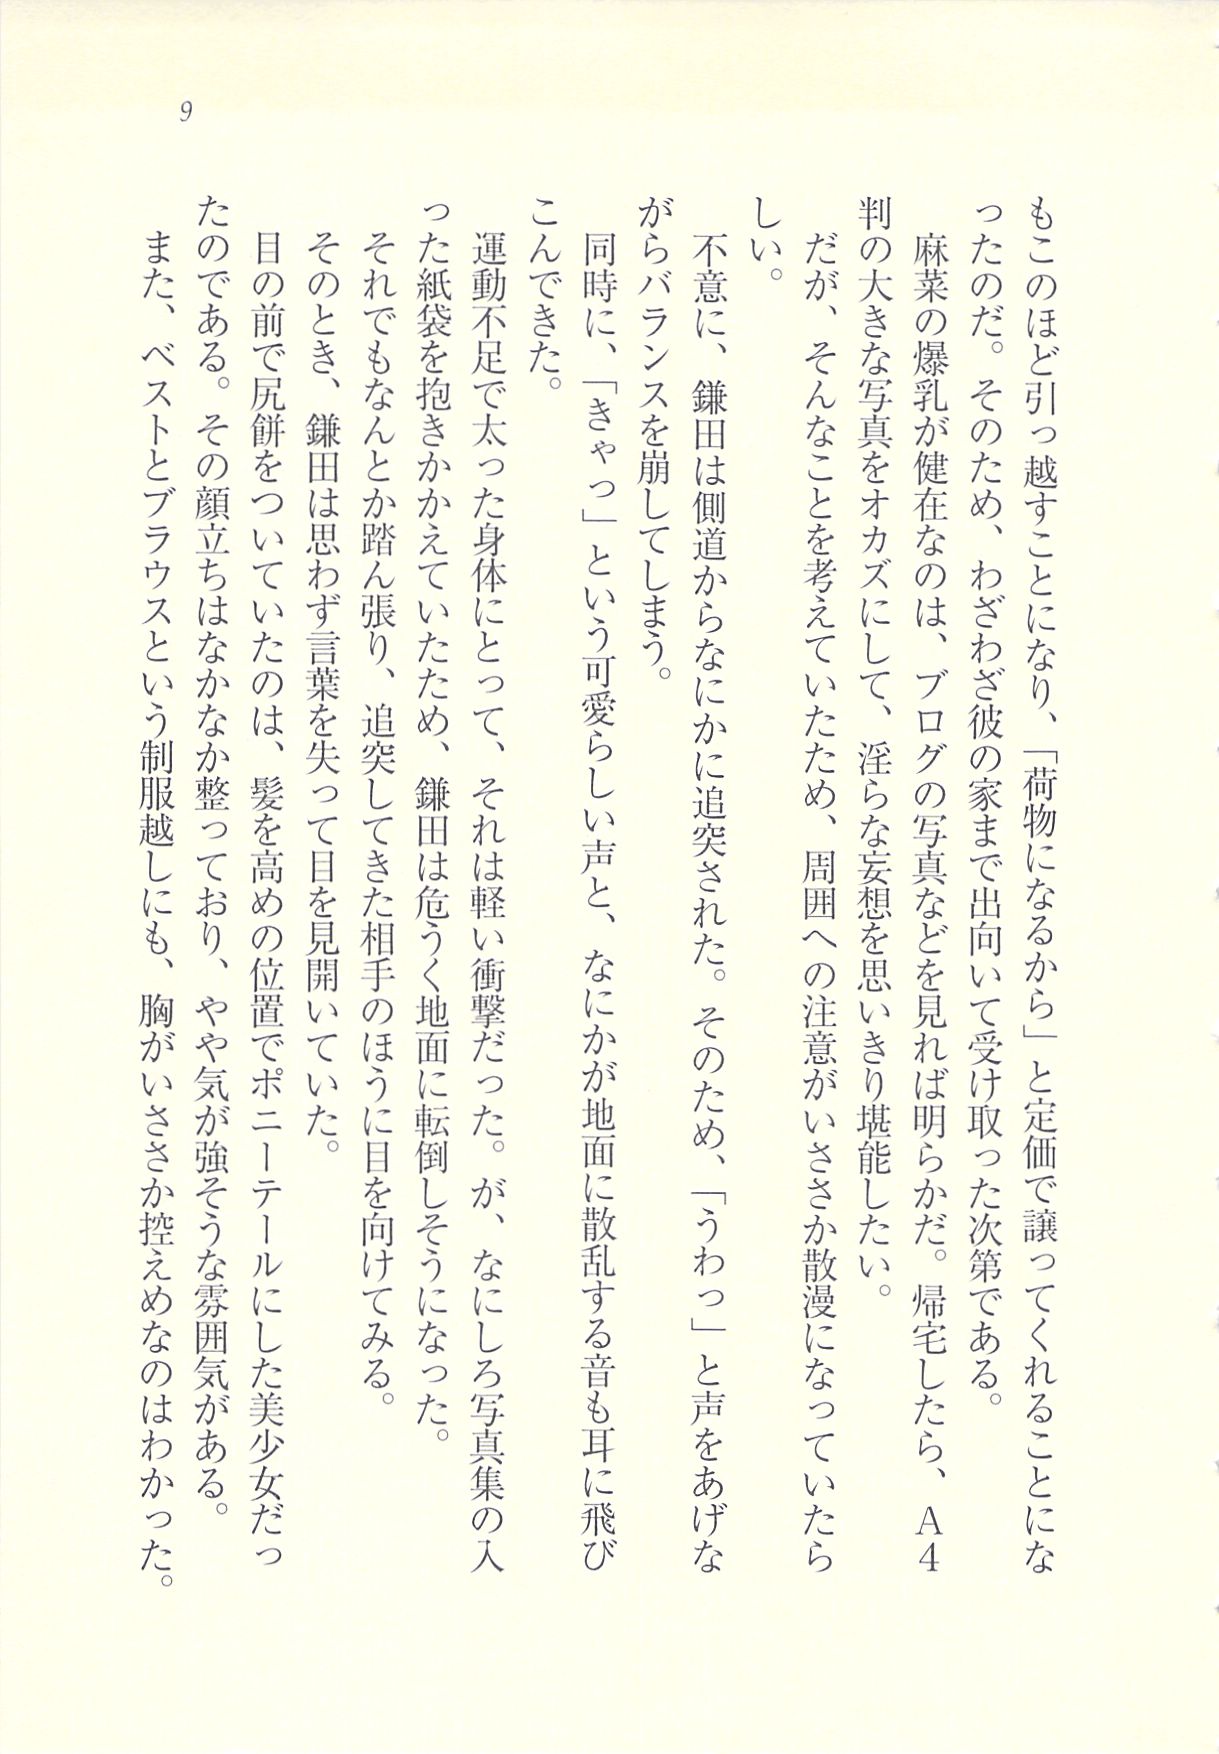 9
もこのほど引っ越すことになり、「荷物になるから」と定価で譲ってくれることにな
ったのだ。そのため、わざわざ彼の家まで出向いて受け取った次第である。
麻菜の爆乳が健在なのは、ブログの写真などを見れば明らかだ。帰宅したら、A4
判の大きな写真をオカズにして、淫らな妄想を思いきり堪能したい。
だが、そんなことを考えていたため、周囲への注意がいささか散漫になっていたら
しい。
不意に、鎌田は側道からなにかに追突された。そのため、「うわっ」と声をあげな
がらバランスを崩してしまう。
同時に、「きゃっ」という可愛らしい声と、なにかが地面に散乱する音も耳に飛び
こんできた。
運動不足で太った身体にとって、それは軽い衝撃だった。が、なにしろ写真集の入
った紙袋を抱きかかえていたため、鎌田は危うく地面に転倒しそうになった。
それでもなんとか踏ん張り、追突してきた相手のほうに目を向けてみる。
そのとき、鎌田は思わず言葉を失って目を見開いていた。
目の前で尻餅をついていたのは、髪を高めの位置でポニーテールにした美少女だっ
たのである。その顔立ちはなかなか整っており、やや気が強そうな雰囲気がある。
また、ベストとブラウスという制服越しにも、胸がいささか控えめなのはわかった。